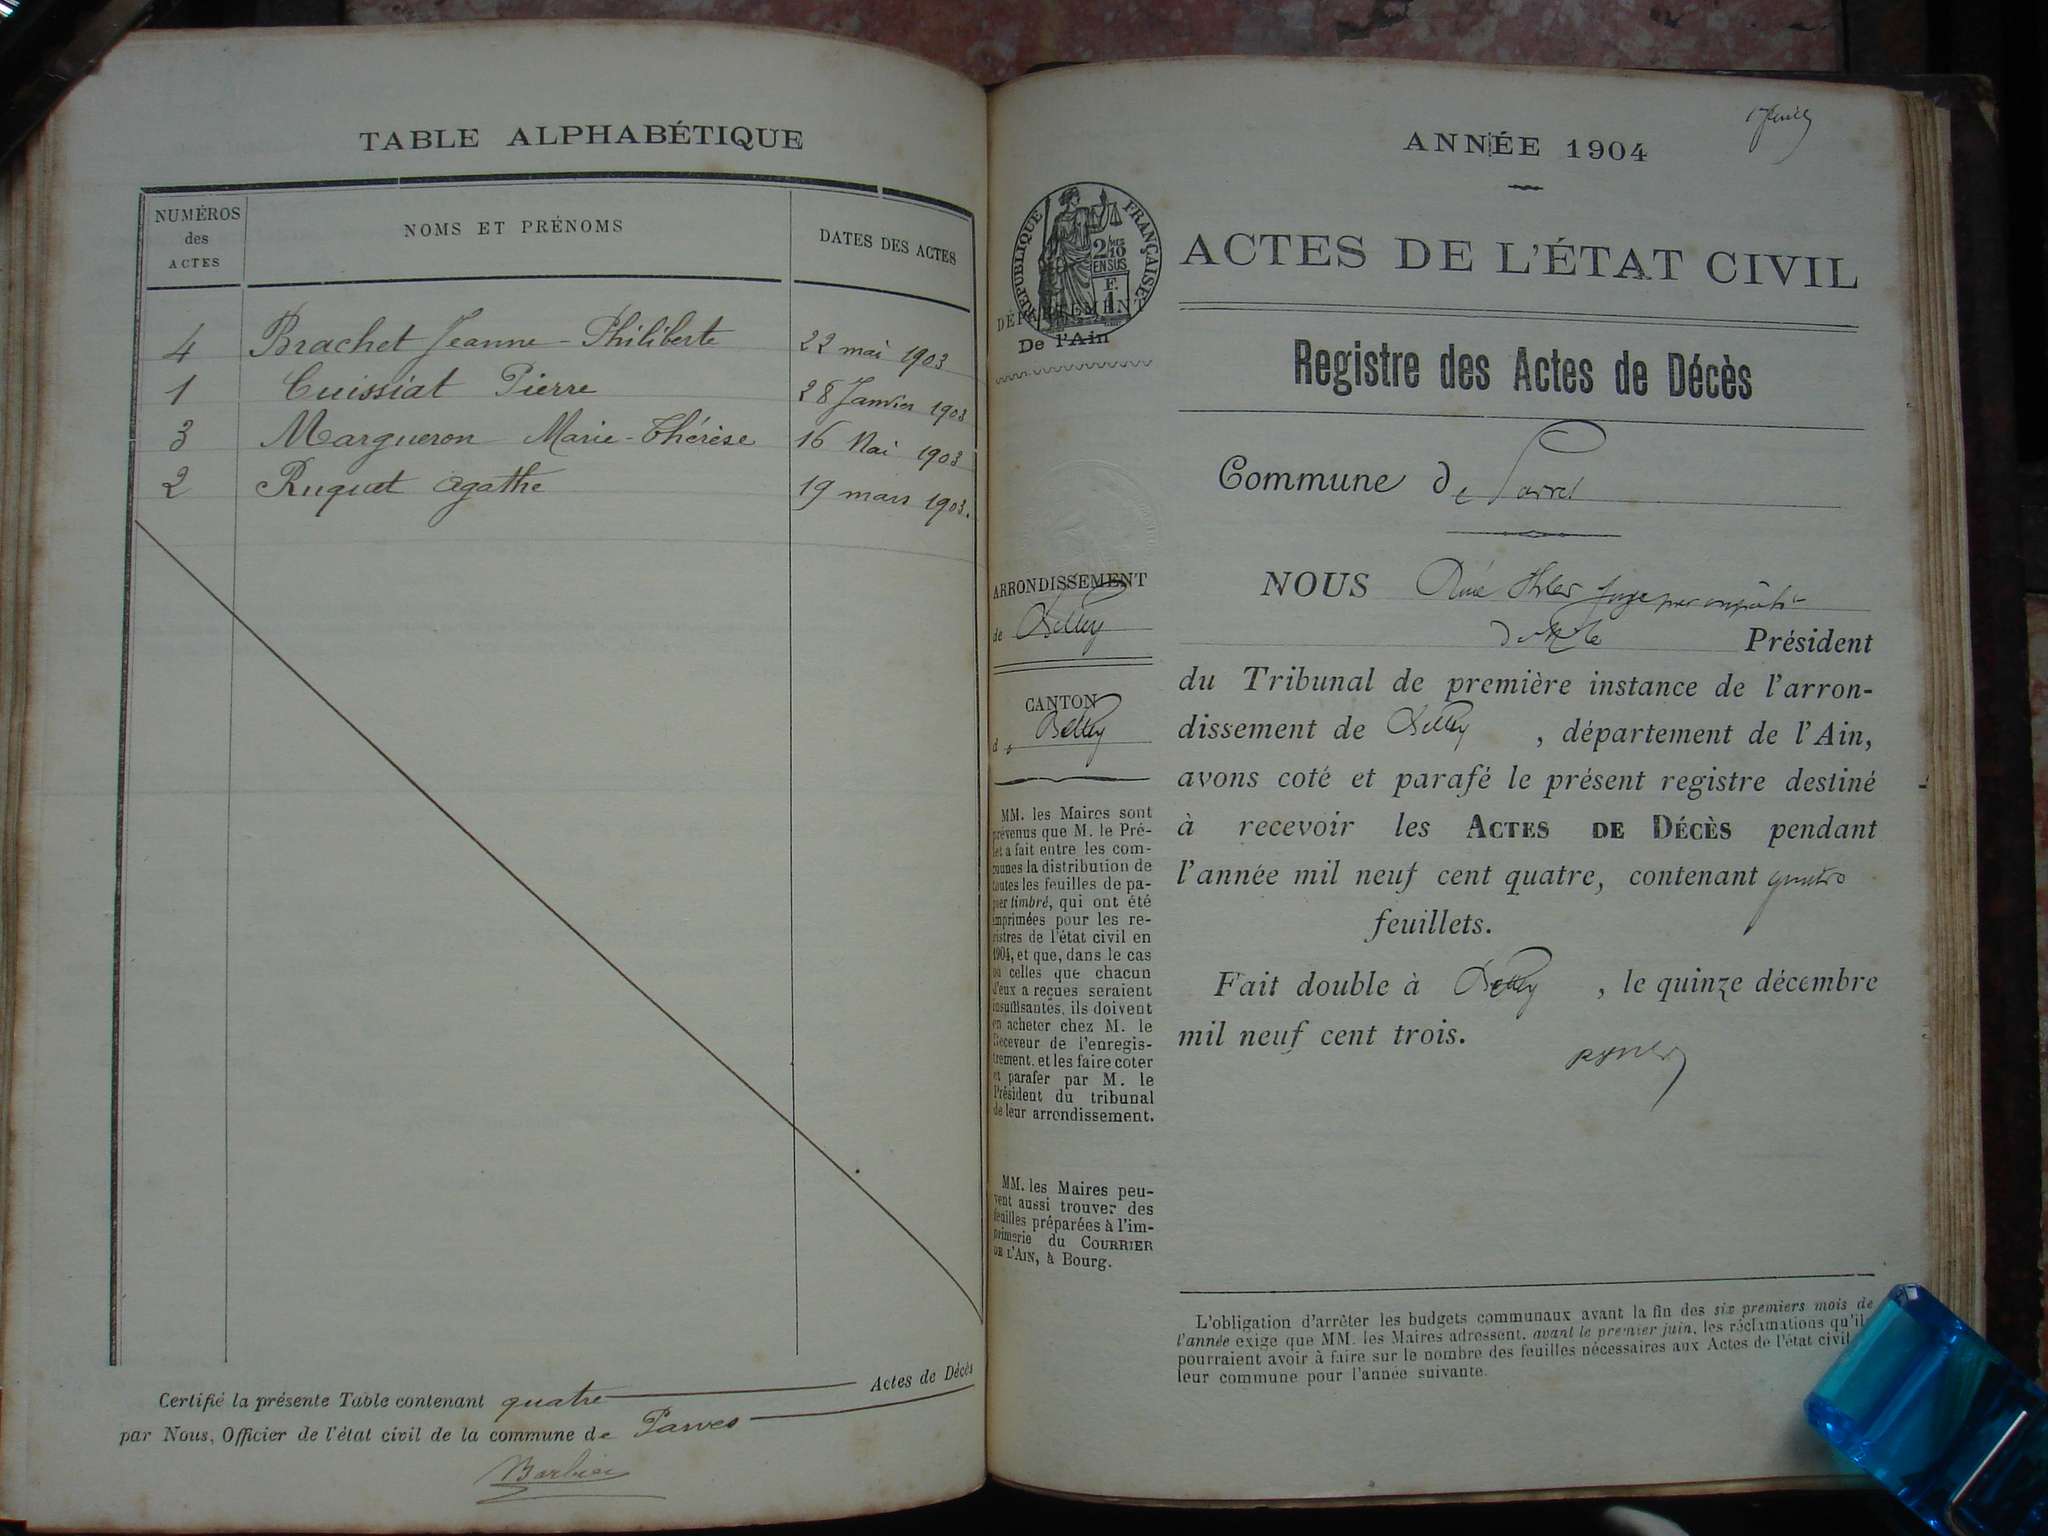 TABLE ALPHABÉTIQUE
NUMÉROS
des
ACTES
NOMS ET PRÉNOMS
DATES DES ACTES
4 Brachet Jeanne-Philiberte 22 mai 1903
1 Cuissiat Pierre 28 Janvier 1903
3 Margueron Marie-Thérèse 16 Mai 1903
2 Ruguet Agathe 19 mars 1903.
Certifié la présente Table contenant quatre Actes de Décès
par Nous, Officier de l'état civil de la commune de Parves
Barbier
ANNÉE 1904
RÉPUBLIQUE FRANÇAISE
2/10
EN SUS
F.
1
DÉPARTEMENT
De l'Ain
ACTES DE L'ÉTAT CIVIL
Registre des Actes de Décès
Commune de Parves
ARRONDISSEMENT
de Belley
CANTON
de Belley
MM. les Maires sont
prévenus que M. le Pré-
fet a fait entre les com-
munes la distribution de
toutes les feuilles de pa-
pier timbré, qui ont été
imprimées pour les re-
gistres de l'état civil en
1904, et que, dans le cas
où celles que chacun
d'eux a reçues seraient
insuffisantes, ils doivent
en acheter chez M. le
Receveur de l'enregis-
trement, et les faire coter
et parafer par M. le
Président du tribunal
de leur arrondissement.
MM. les Maires peu-
vent aussi trouver des
feuilles préparées à l'im-
primerie du COURRIER
DE L'AIN, à Bourg.
NOUS
Président
du Tribunal de première instance de l'arron-
dissement de Belley, département de l'Ain,
avons coté et parafé le présent registre destiné
à recevoir les ACTES DE DÉCÈS pendant
l'année mil neuf cent quatre, contenant quatre
feuillets.
Fait double à Belley, le quinze décembre
mil neuf cent trois.
L'obligation d'arrêter les budgets communaux avant la fin des six premiers mois de
l'année exige que MM. les Maires adressent, avant le premier juin, les réclamations qu'il
pourraient avoir à faire sur le nombre des feuilles nécessaires aux Actes de l'état civil
leur commune pour l'année suivante.